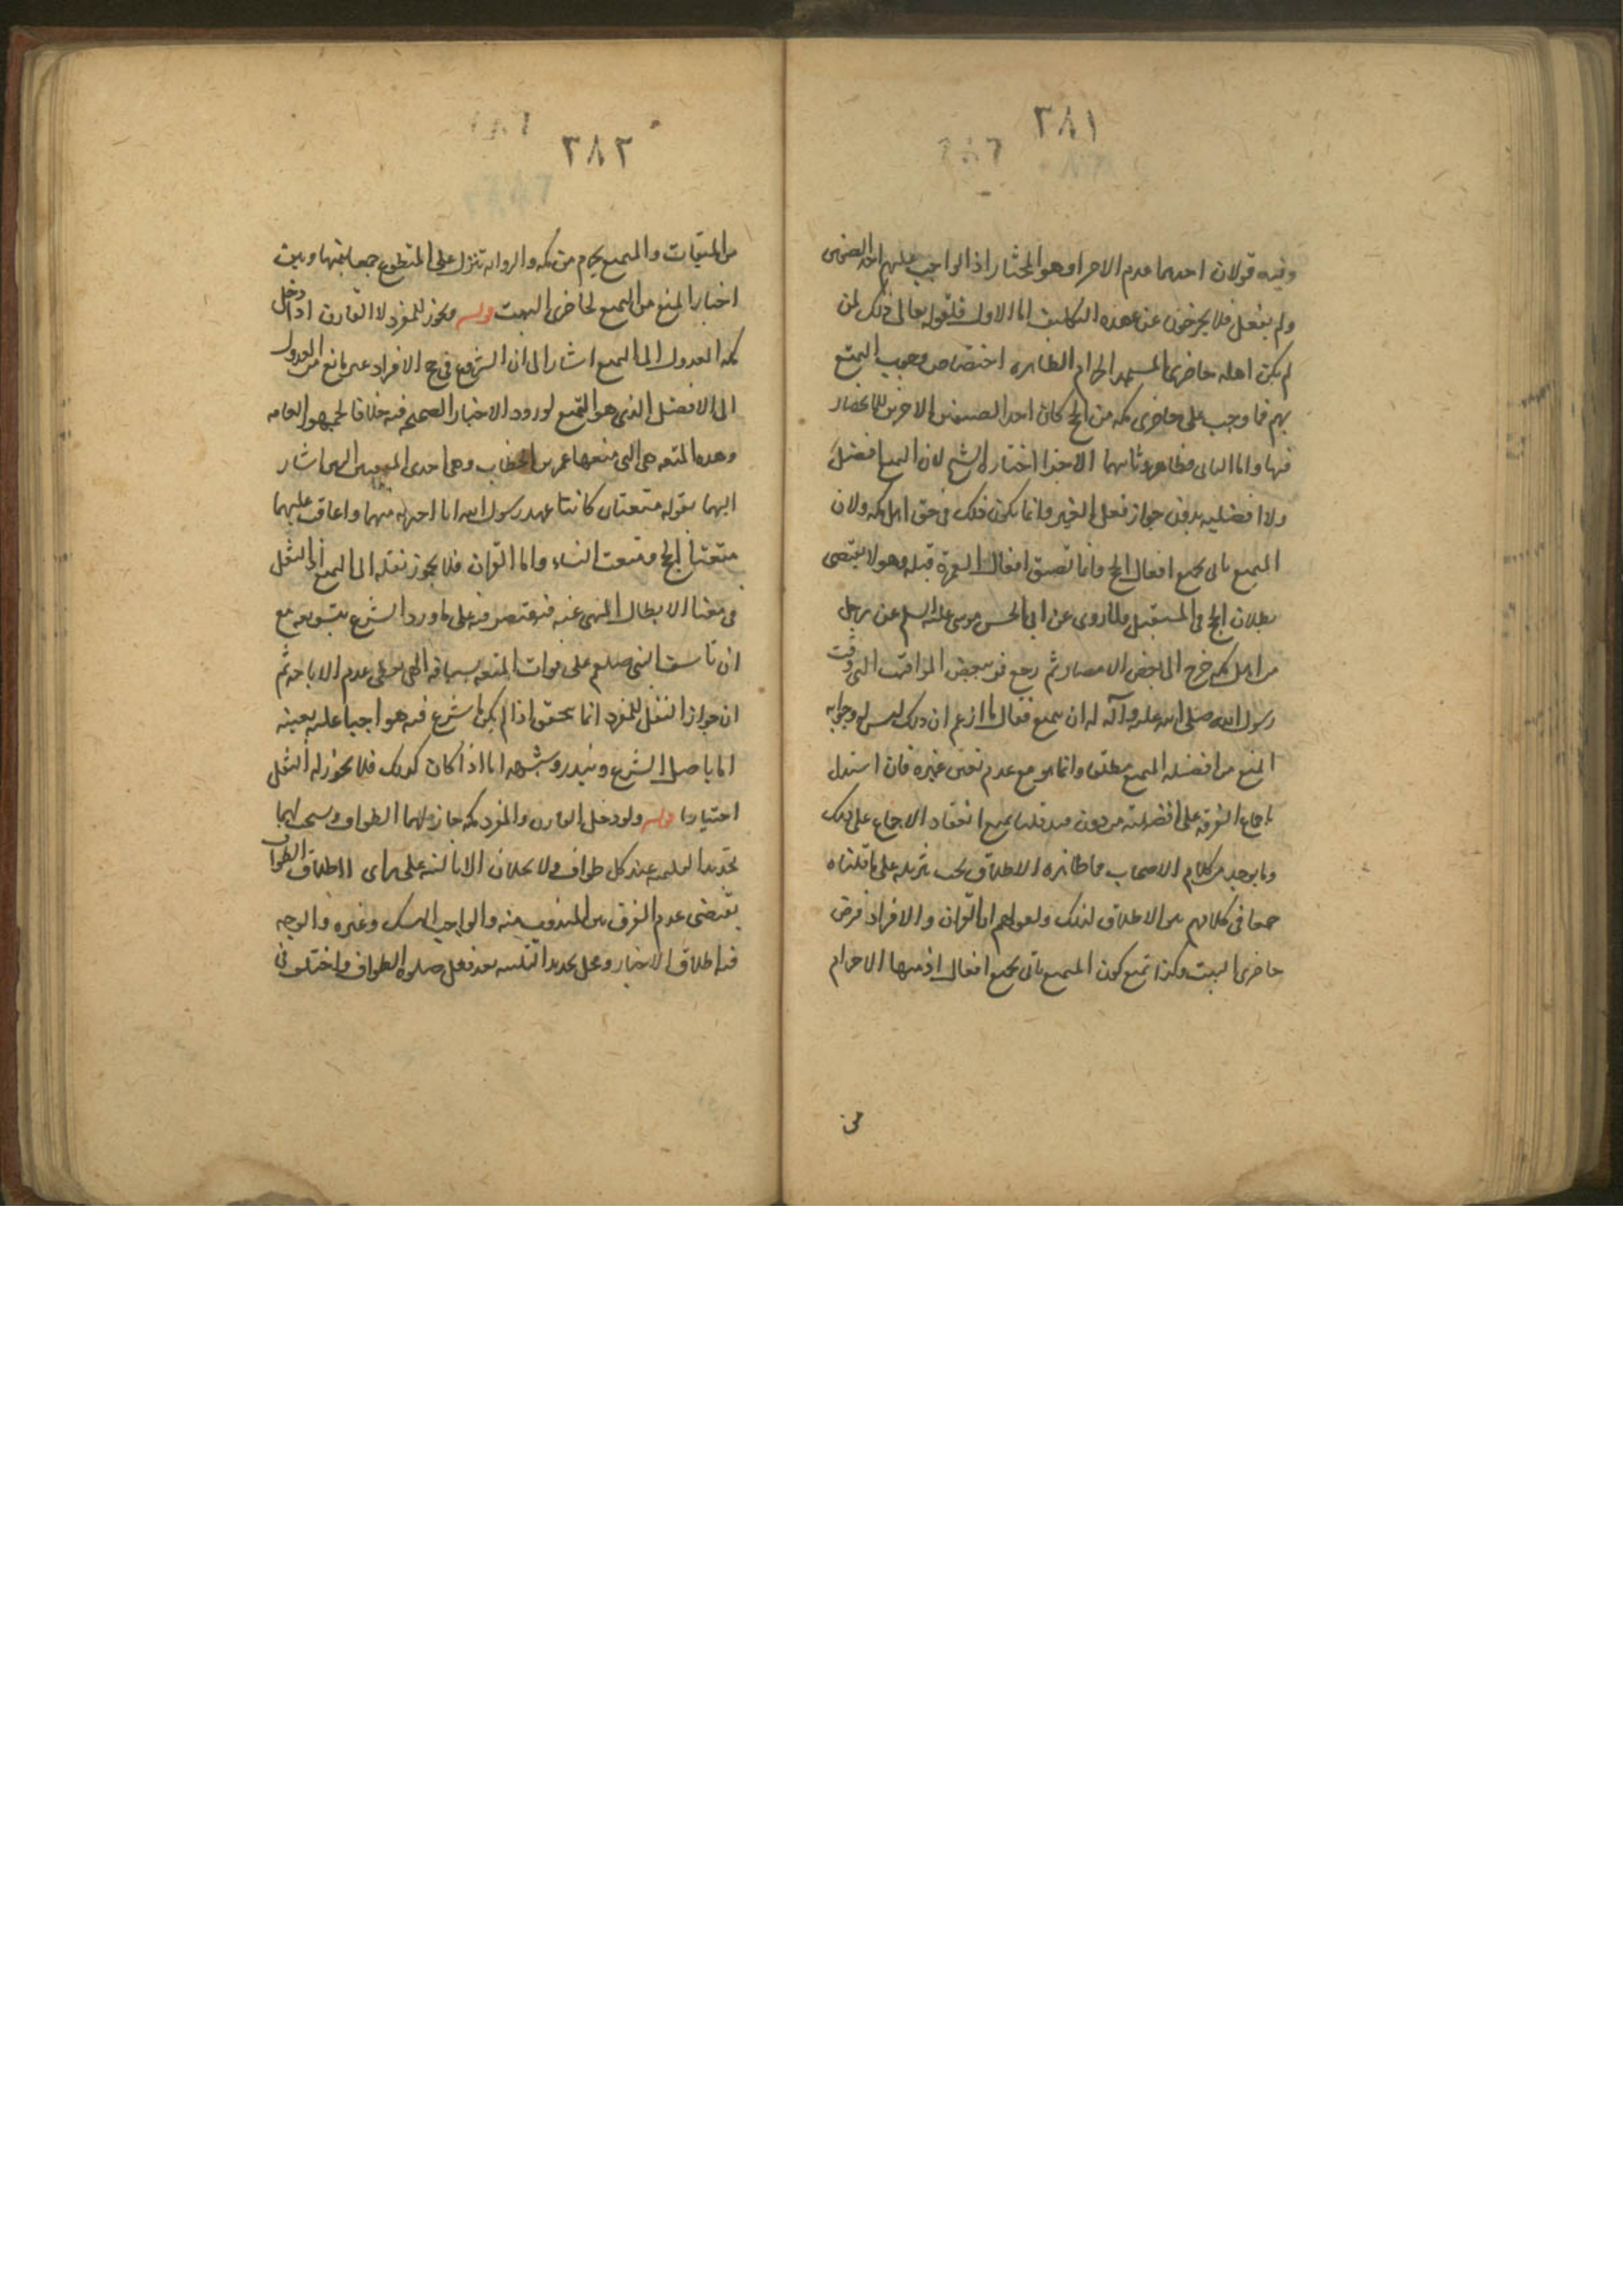 ٢٨١
وفيه قولان احدهما عدم الاجزا وهو المختار اذ الواجب عليهم احد الصنفين
ولم يفعل فلا يخرجون عن عهده التكليف اما الاول فلقوله تعالى ذلك لمن
لم يكن اهله حاضرى المسجد الحرام الظاهره اختصاص وجوب التمتع
بهم فما وجب على حاضرى مكه من الحج كان احد الصنفين الاخرين للانحصار
فيها واما الثانى فظاهر وثانيهما الاجزا اختاره الشيخ لان التمتع افضل
ولا افضليه بدون جواز فعل الغير وانما يكون ذلك فى حق اهل مكه ولان
المتمتع ياتى بجميع افعال الحج وانما تصيق افعال العمرة قبله وهو لا يقتضى
بطلان الحج فى المستقبل ولما روى عن ابى الحسن موسى عليه السلم عن رجل
من اهل مكه خرج الى بعض الامصار ثم رجع فمر ببعض المواقيت التى وقت
رسول الله صلى الله عليه وآله له ان يتمتع فقال ما ازعم ان ذلك ليس له وجوابه
المنع من افضليه التمتع مطلقا وانما هو مع عدم تعين غيره فان استدل
باجماع الفرقه على افضليته من دون قيد قلنا يمنع انعقاد الاجماع على ذلك
وما يوجد من كلام الاصحاب مما ظاهره الاطلاق يجب تنزيله على ما قلناه
جمعا فى كلامهم بين الاطلاق لذلك ولقولهم اما القران والافراد فرض
حاضرى البيت وكذا تمنع كون المتمتع ياتى بجميع افعال اذ منها الاحرام
من
٢٨٢
من الميقات والمتمتع يحرم من مكه والروايه تنزل على المتطوع جمعا بينها وبين
اخبار المنع من التمتع لحاضرى البيت قوله ويجوز للمفرد لا القارن اذا دخل
مكه العدول الى التمتع اشار الى ان الشروع فى حج الافراد غير مانع من العدول
الى الافضل الذى هو التمتع لورود الاخبار الصحيحه فيه خلافا لجمهور العامه
وهذه المتعه هى التى منعها عمر بن الخطاب وهى احدى المتعتين اللتين اشار
اليهما بقوله متعتان كانتا عهد رسول الله انا احرمهما واعاقب عليهما
متعة الحج ومتعت النساء واما القران فلا يجوز نقله الى التمتع اذ النقل
فى معنا الابطال المنهى عنه فيقتصر فيه على ما ورد الشرع بتسويغه مع
ان تاسف النبى صلعم على فوات المتعه بسياقه الهدى يعطى عدم الاباحه ثم
ان جواز النقل للمفرد انما يتحقق اذا لم يكن ما شرع فيه هو واجبا عليه بعينه
اما باصل الشرع وبنذر وشبهه اما اذا كان كذلك فلا يجوز له النقل
اختيارا قوله ولو دخل القارن والمفرد مكه جاز لهما الطواف ويستحب لهما
تجديد التلبيه عند كل طواف ولا يحلان الا بالنيه على راى اطلاق الطواف
يقتضى عدم الفرق بين المندوب منه والواجب للنسك وغيره والوجه
فيه اطلاق الاخبار ومحل تجديد التلبيه بعد فعل صلوة الطواف واختلف فى